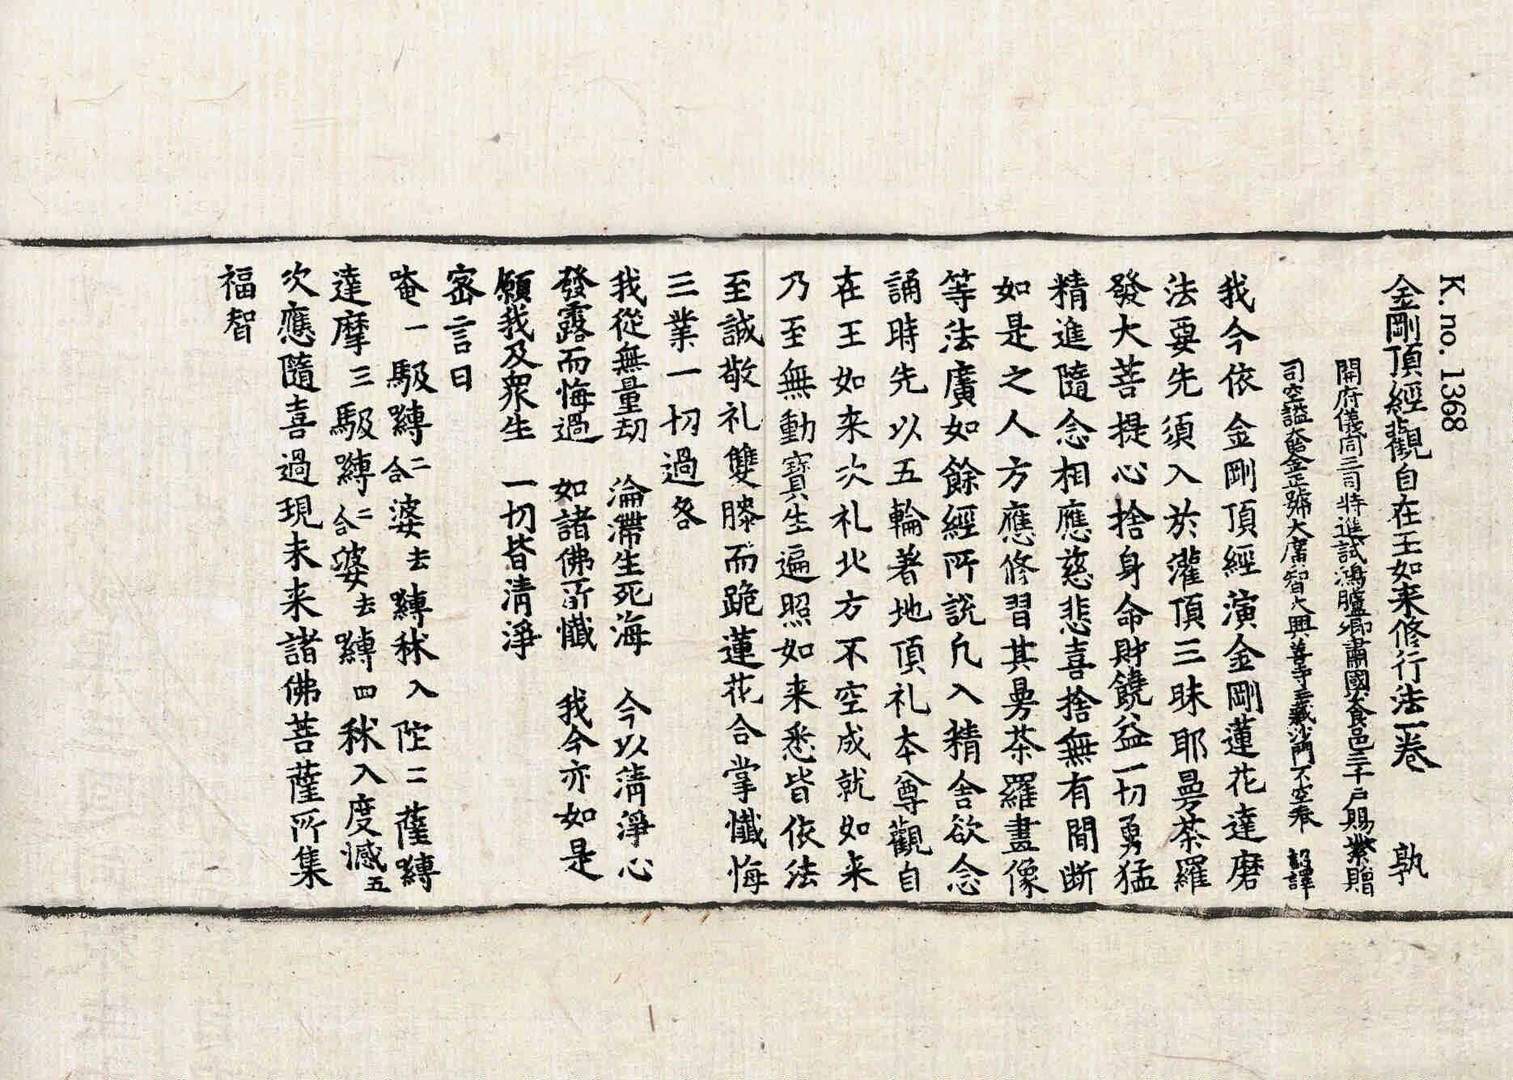 K. no. 1368
金剛頂經觀自在王如来修行法一卷　孰
開府儀同三司特進試鴻臚卿肅國公食邑三千户賜紫贈
司空謚大鑒正號大廣智大興善寺三藏沙門不空奉　詔譯
我今依金剛頂經演金剛蓮花達磨
法要先須入於灌頂三昧耶曼荼羅
發大菩提心捨身命財饒益一切勇猛
精進隨念相應慈悲喜捨無有間断
如是之人方應修習其曼荼羅畫像
等法廣如餘經所説凡入精舎欲念
誦時先以五輪著地頂礼本尊觀自
在王如来次礼北方不空成就如来
乃至無動寶生遍照如来悉皆依法
至誠敬礼雙膝而跪蓮花合掌懺悔
三業一切過咎
我從無量劫　淪滯生死海　今以清淨心
發露而悔過　如諸佛所懺　我今亦如是
願我及衆生　一切皆清淨
密言曰
唵一馺嚩二合婆去嚩秫入陀二薩嚩
達摩三馺嚩二合婆去嚩四秫入度憾五
次應隨喜過現未来諸佛菩薩所集
福智